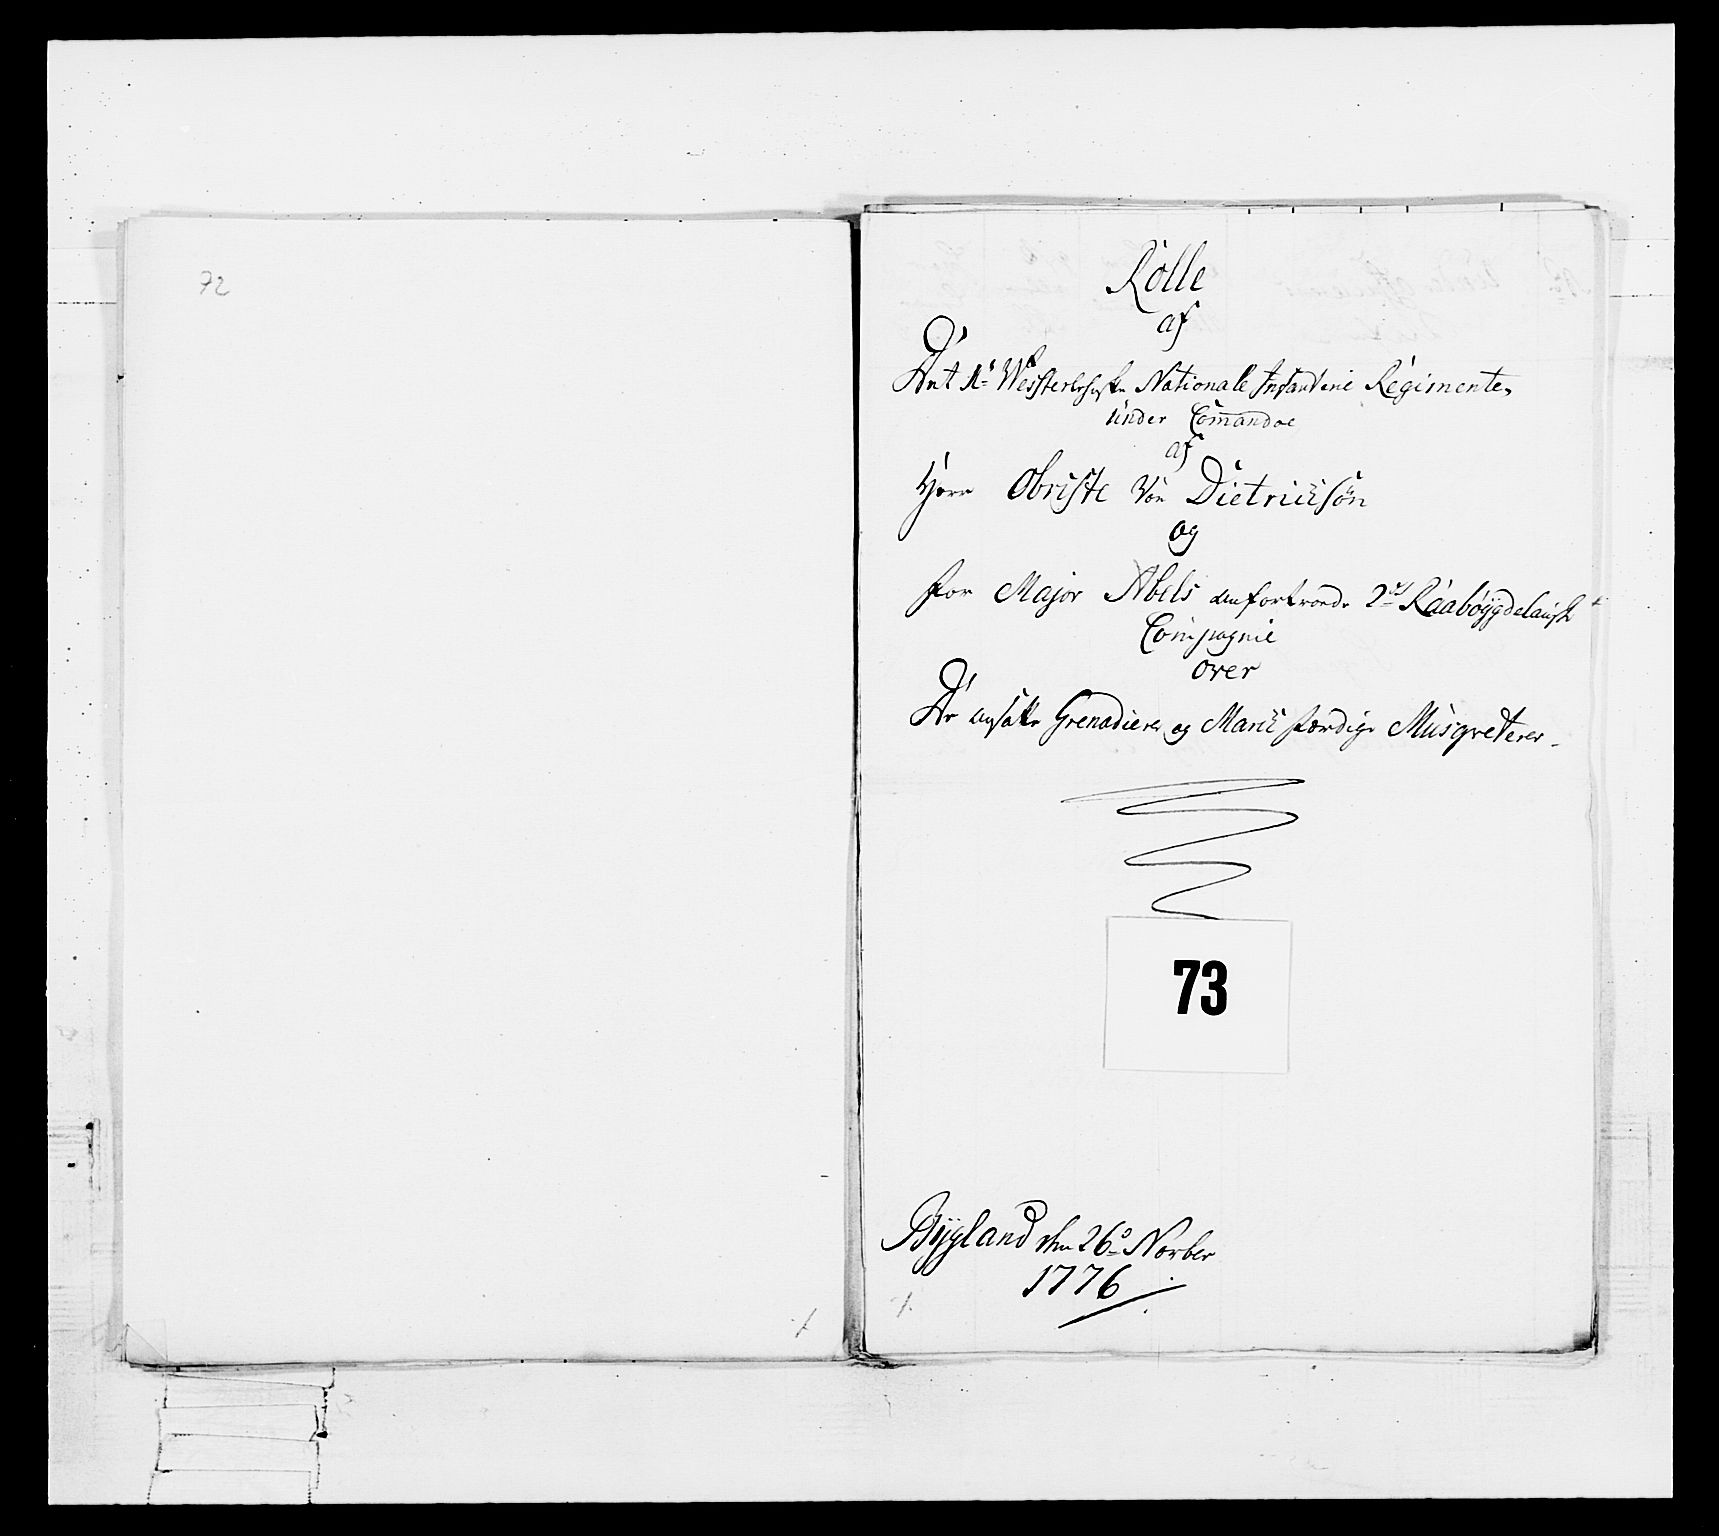 72
Rolle
af
Det 1te Westerlehnske Nationale Infanterie Regimente,
under Comandoe
af
Herr Obriste Von Dietrichsøn
og
for Major Abels anfortroede 2det Raabøygdelauske
Compagnie
over
De ansatte Grenadierer og March færdige Musqveterer.
73
Bÿgland den 26de Novber
1776